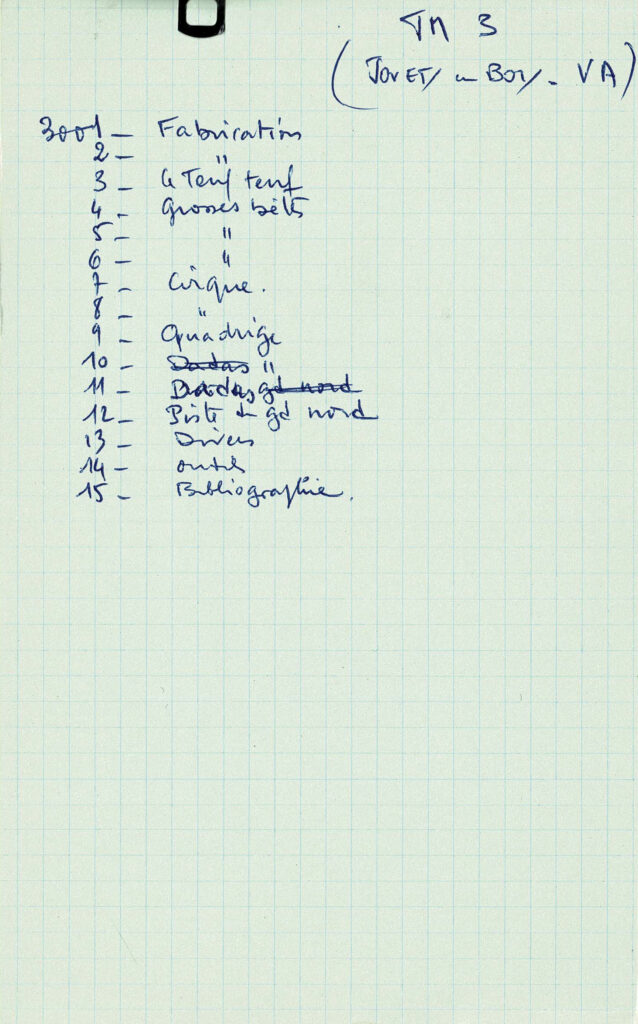 TM 3
(JOUETS en BOIS - VA)
3001 - Fabrication
2 - "
3 - le Teuf teuf
4 - Grosses bêtes
5 - "
6 - "
7 - Cirque.
8 - "
9 - Quadrige
10 - Dadas "
11 - Dadas gd nord
12 - Piste du gd nord
13 - Divers
14 - outils
15 - Bibliographie.